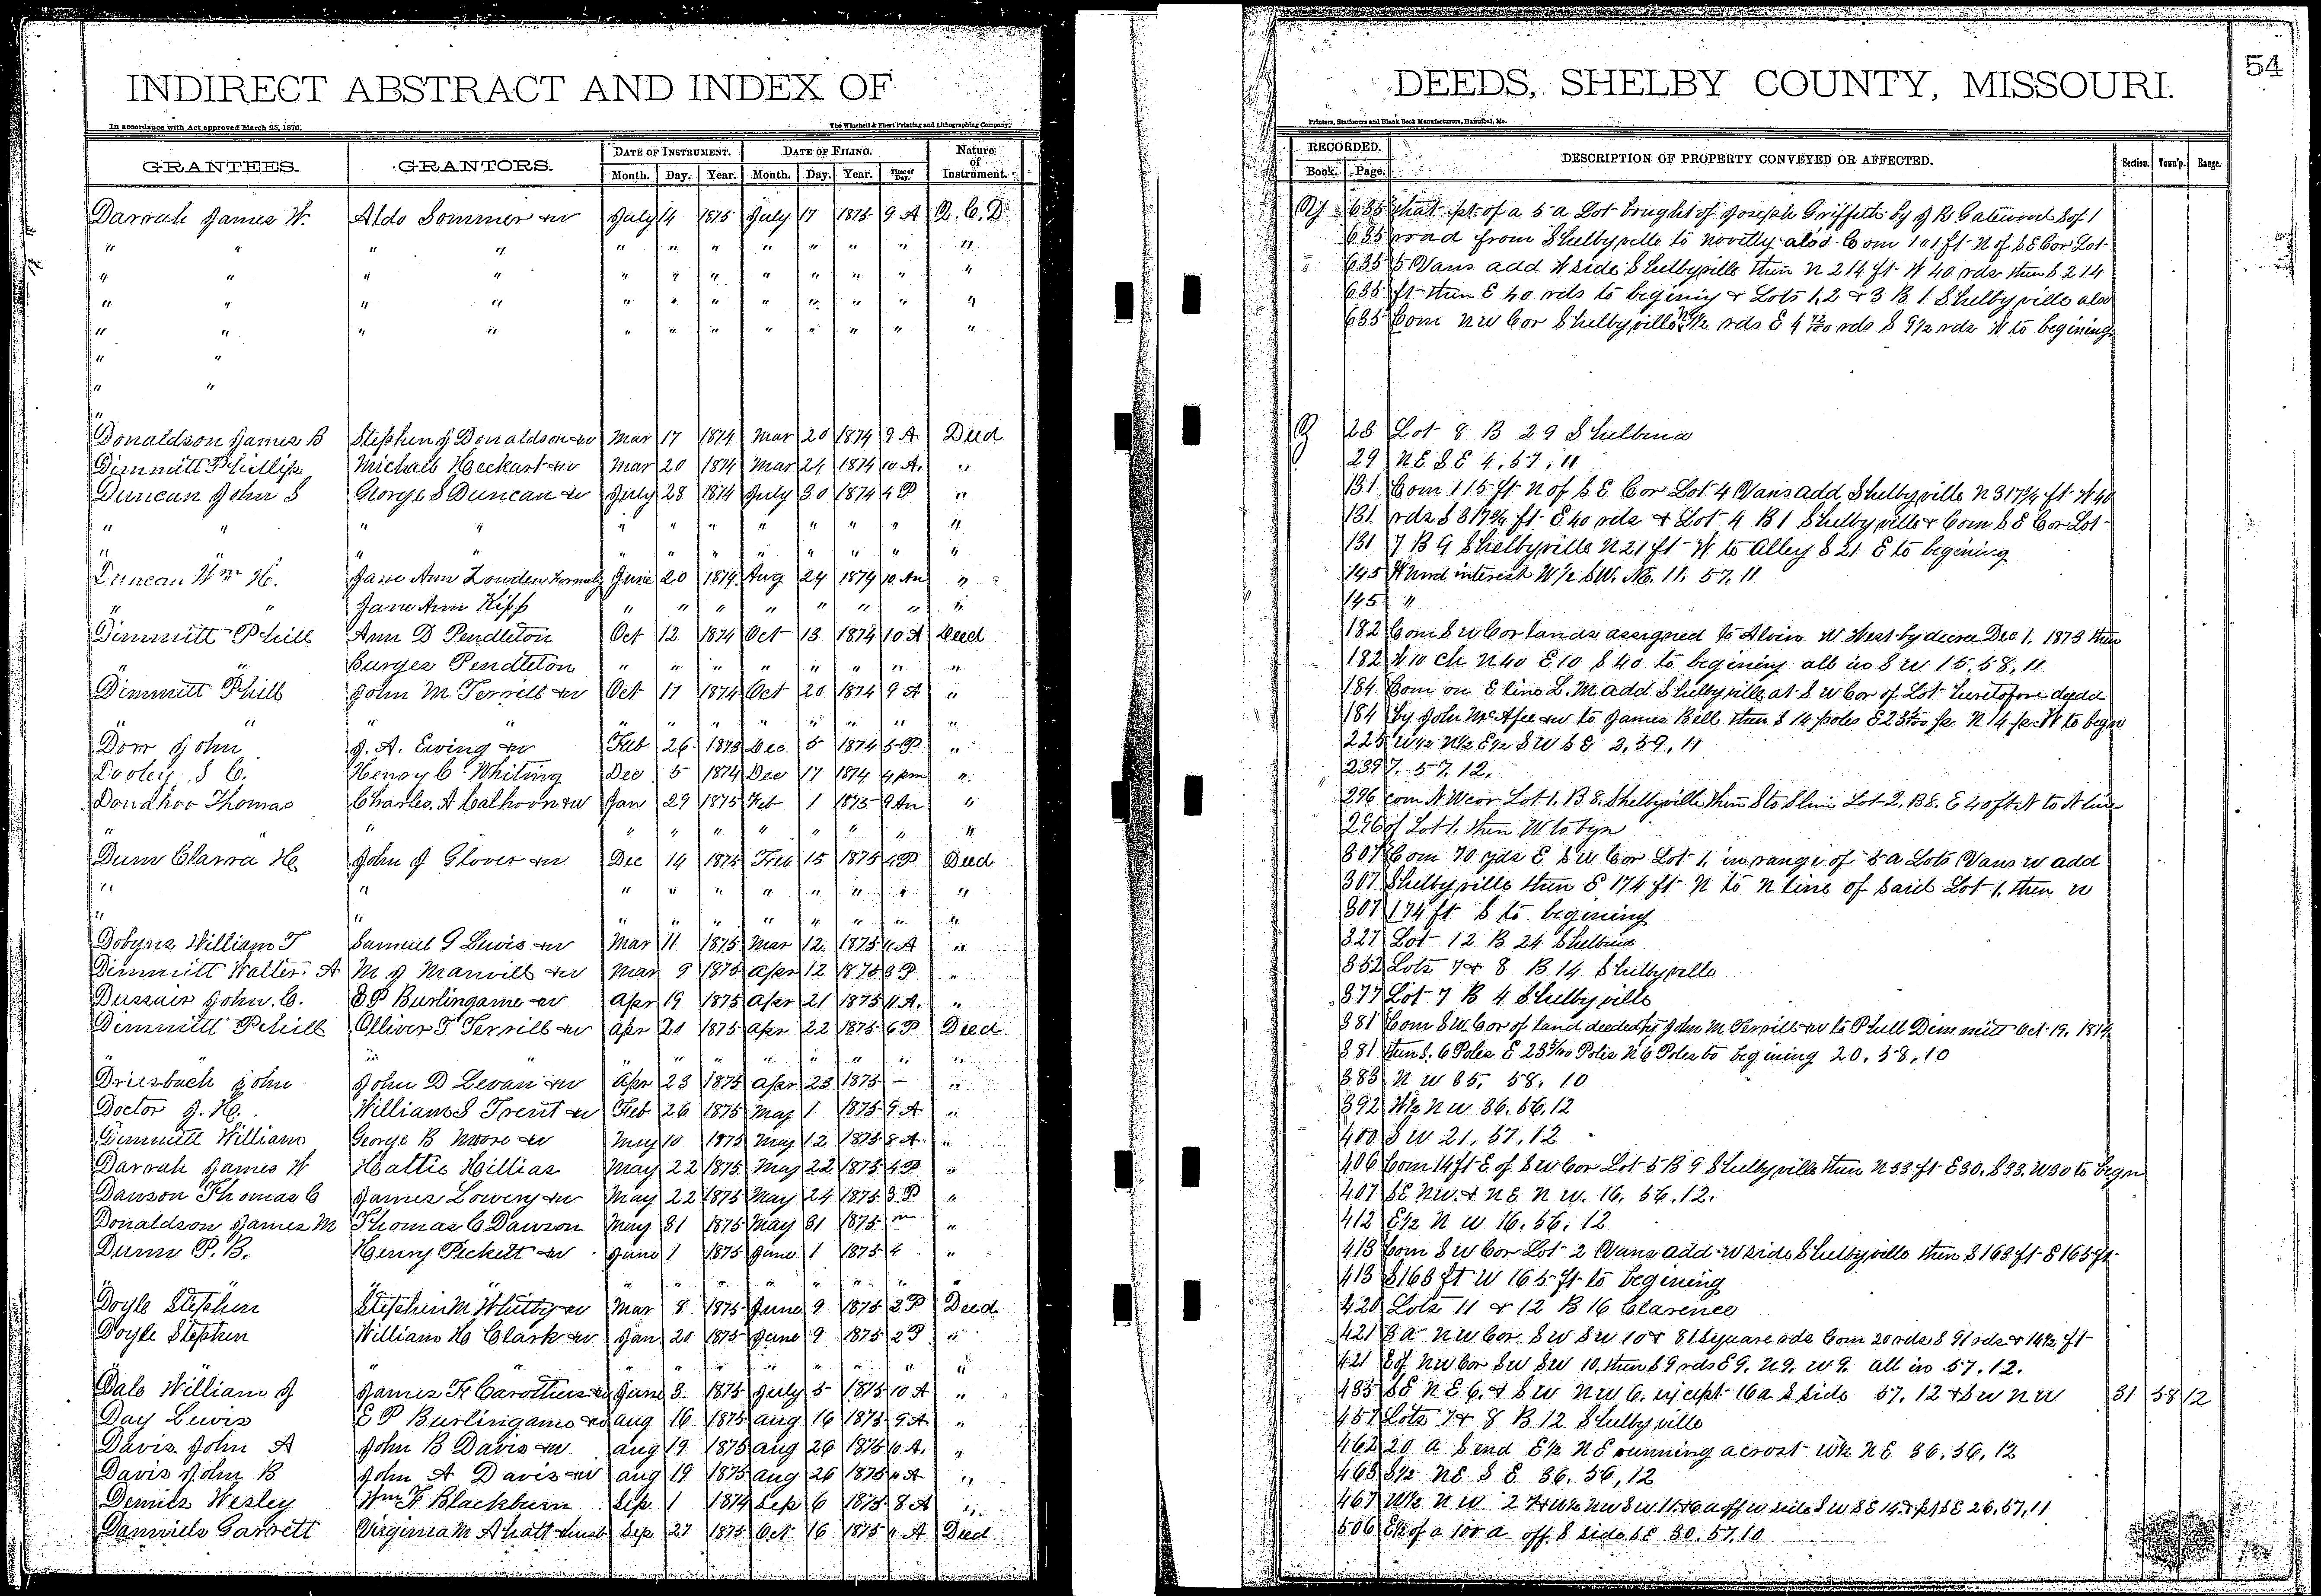 INDIRECT ABSTRACT AND INDEX OF DEEDS, SHELBY COUNTY, MISSOURI. 54
In accordance with Act approved March 25, 1870. The Winchell & Ebert Printing and Lithographing Company, Printers, Stationers and Blank Book Manufacturers, Hannibal, Mo.
GRANTEES. GRANTORS. DATE OF INSTRUMENT. DATE OF FILING. Nature of Instrument. RECORDED. DESCRIPTION OF PROPERTY CONVEYED OR AFFECTED. Section. Town'p. Range.
Month. Day. Year. Month. Day. Year. Time of Day. Book. Page.
Darrah James W. Aldo Sommer & w July 14 1875 July 17 1875 9 A Q. C. D 635 that pt. of a 5 a Lot bought of Joseph Griffith by J R Gatewood S of
" " " " " " " " " " " " 635 road from Shelbyville to Novelty also Com 101 ft N of S E Cor Lot
" " " " " " " " " " " " 635 5 Vans add W side Shelbyville then N 214 ft W 40 rds then S 214
" " " " " " " " " " " " 635 ft then E 40 rds to begining & Lots 1, 2 & 3 B 1 Shelbyville also
" " " " " " " " " " " " 635 Com N W Cor Shelbyville N 9 1/2 rds E 4 72/100 rds S 9 1/2 rds W to begining
" "
" "
"
Donaldson James B Stephen J Donaldson & w Mar 17 1874 Mar 20 1874 9 A Deed 23 Lot 8 B 29 Shelbina
Dimmitt Phillip Michael Heckart & w Mar 20 1874 Mar 24 1874 10 A. " 29 N E S E 4, 57, 11
Duncan John S George S Duncan & w July 28 1874 July 30 1874 4 P " 131 Com 115 ft N of S E Cor Lot 4 Vans add Shelbyville N 317 3/4 ft W 40
" " " " " " " " " " " " 131 rds S 317 3/4 ft E 40 rds & Lot 4 B 1 Shelbyville & Com S E Cor Lot
" " " " " " " " " " " 131 7 B 9 Shelbyville N 21 ft W to Alley S 21 E to begining
Duncan Wm H. Jane Ann Lowden formerly June 20 1874 Aug 24 1874 10 Am " 145 interest W 1/2 SW. NE. 11. 57. 11
" " Jane Ann Kipp " " " " " " " " 145 "
Dimmitt Phill Ann D Pendleton Oct 12 1874 Oct 13 1874 10 A Deed 182 Com S W Cor lands assigned to Alvin W West by decree Dec 1. 1873 then
" " Burges Pendleton " " " " " " " " 182 W 10 ch N 40 E 10 S 40 to begining all in S W 15, 58, 11
Dimmitt Phill John M Terrill & w Oct 17 1874 Oct 20 1874 9 A " 184 Com on E line L. M add Shelbyville at S W Cor of Lot heretofore deedd
" " " " " " " " " " " " 184 by John McAfee & w to James Bell then S 14 poles E 23 N 14 W to begn
Dorr John J. A. Ewing & w Feb 26 1873 Dec. 5 1874 5 P " 225 W 1/2 N 1/2 E 1/2 S W S E 2, 59, 11
Dooley S C. Henry C. Whiting Dec 5 1874 Dec 17 1874 4 pm " 239 7. 57. 12.
Donahoo Thomas Charles A Calhoon & w Jan 29 1875 Feb 1 1875 9 Am " 296 com N W cor Lot 1. B 8. Shelbyville then S to S line Lot 2. B 8. E 40 ft N to N line
" " " " " " " " " " " 296 of Lot 1. then W to bgn
Dunn Clarra H John J Glover & w Dec 14 1875 Feb 15 1875 4 P Deed 307 Com 70 yds E S W Cor Lot 1, in range of 5 a Lots Vans W add
" " " " " " " " " " 307 Shelbyville then E 174 ft N to N line of said Lot 1, then W
" " " " " " " " " " 307 174 ft S to begining
Dobyns William T Samuel G Lewis & w Mar 11 1875 Mar 12 1875 11 A " 327 Lot 12 B 24 Shelbina
Dimmitt Walter A M J Manvill & w Mar 9 1875 Apr 12 1875 3 P " 352 Lots 7 & 8 B 14 Shelbyville
Dussair John C. E P Burlingame & w Apr 19 1875 Apr 21 1875 11 A. " 377 Lot 7 B 4 Shelbyville
Dimmitt Phill Olliver T Terrill & w Apr 20 1875 Apr 22 1875 6 P Deed 381 Com S W. Cor of land deeded by John M Terrill & w to Phill Dimmitt Oct 19. 1874
" " " " " " " " " " 381 then S. 6 Poles E 23 Poles N 6 Poles to begining 20, 58, 10
Driesbach John John D Levan & w Apr 23 1875 Apr 23 1875 — " 383 N W 35, 58, 10
Doctor J. H. William S Trent & w Feb 26 1875 May 1 1875 9 A " 392 W 1/2 N W 36. 56. 12
Dimmitt William George B Moore & w May 10 1875 May 12 1875 8 A " 400 S W 21, 57, 12
Darrah James W Hattie Hillias May 22 1875 May 22 1875 4 P " 406 Com 14 ft E of S W Cor Lot 5 B 9 Shelbyville then N 33 ft E 30. S 33. W 30 to begn
Dawson Thomas C James Lowery & w May 22 1875 May 24 1875 3 P " 407 S E N W. & N E N W. 16. 56. 12.
Donaldson James M Thomas C Dawson May 31 1875 May 31 1875 m " 412 E 1/2 N W 16. 56. 12
Dunn P. B. Henry Pickett & w June 1 1875 June 1 1875 4 " 413 Com S W Cor Lot 2 Vans add W side Shelbyville then S 163 ft E 165 ft
" " " " " " " " " " " 413 S 163 ft W 165 ft to begining
Doyle Stephen Stephen M Whitby & w Mar 8 1875 June 9 1875 2 P Deed 420 Lots 11 & 12 B 16 Clarence
Doyle Stephen William H Clark & w Jan 20 1875 June 9 1875 2 P " 421 3 a N W Cor S W S W 10 & 81 square rds Com 20 rds S 91 rds & 14 1/2 ft
" " " " " " " " " " 421 E of N W Cor S W S W 10, then S 9 rds E 9. N 9. W 9. all in 57. 12.
Dale William J James F Carothers & w June 3 1875 July 5 1875 10 A " 435 S E N E 6. & S W N W 6. except 16 a S side 57. 12 & S W N W 31 58 12
Day Lewis E P Burlingame & w Aug 16 1875 Aug 16 1875 9 A " 457 Lots 7 & 8 B 12 Shelbyville
Davis John A John B Davis & w Aug 19 1875 Aug 26 1875 10 A. " 462 20 a S end E 1/2 N E running acrost W 1/2 N E 36. 56. 12
Davis John B John A Davis & w Aug 19 1875 Aug 26 1875 11 A " 463 S 1/2 N E S E 36. 56, 12
Demils Wesley Wm F Blackburn Sep 1 1874 Sep 6 1875 8 A " 467 W 1/2 N W 2 26, 57, 11
Danniels Garrett Virginia M Ahatt Sep 27 1875 Oct 16 1875 11 A Deed 506 E 1/2 of a 100 a off S side S E 30. 57. 10